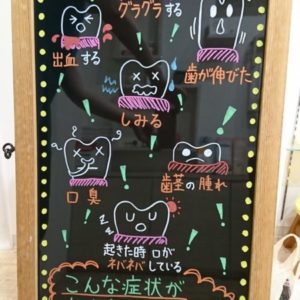 グラグラする
出血する
歯が伸びた
しみる
口臭
歯茎の腫れ
起きた時 口が
ネバネバしている
こんな症状が